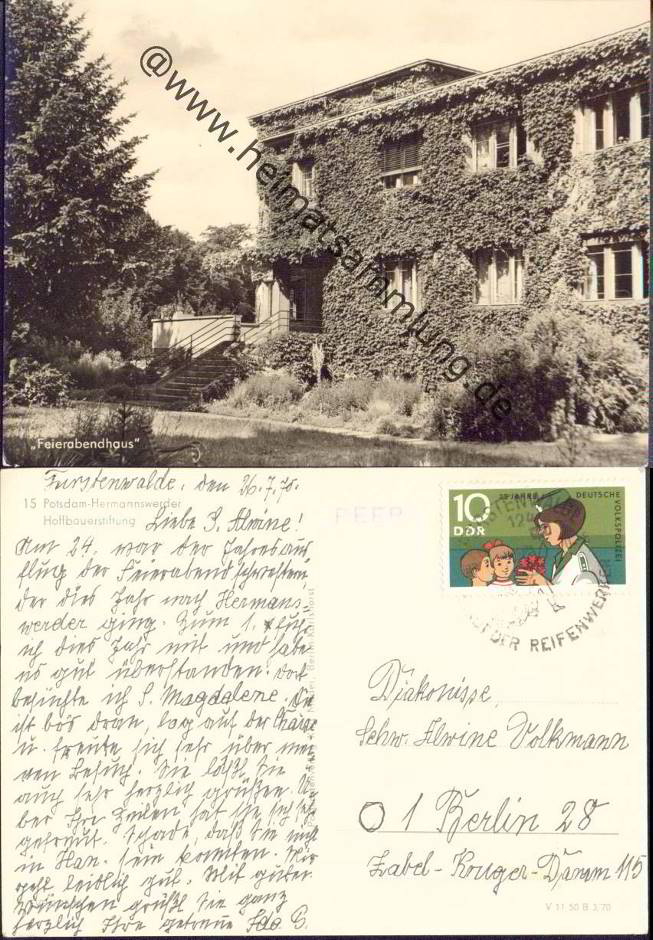 @www.heimatsammlung.de
„Feierabendhaus"
Fürstenwalde, den 26.7.70.
15 Potsdam-Hermannswerder
Hoffbauerstiftung
Liebe S. Alwine!
Am 24. war der Jahresaus
flug der Feierabendschwestern,
der dies Jahr nach Hermans-
werder ging. Zum 1. x fuhr
ich dies Jahr mit und habe
es gut überstanden. Dort
besuchte ich S. Magdalene. Sie
ist bös dran, lag auf der Chaise
u. freute sich sehr über mei
nen Besuch. Sie läßt Sie
auch sehr herzlich grüßen. Ü
ber Ihre Zeilen hat sie sich sehr
gefreut. Schade, daß Sie nicht
in Han. sein konnten. Mir
geht leidlich gut. Mit guten
Wünschen grüßt Sie ganz
herzlich Ihre getreue Ida B.
10
DDR
25 JAHRE
DEUTSCHE
VOLKSPOLIZEI
DER REIFENWERK
Diakonisse,
Schw. Alwine Volkmann
1 Berlin 28
Zabel-Krüger-Damm 115
V 11 50 B 3/70